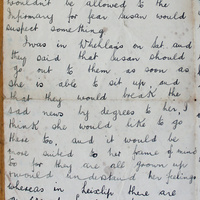 wouldn't be allowed to the
Infirmary for fear Susan would
suspect something
I was in Whelan's on Sat. and
they said that Susan should
go out to them as soon as
she is able to sit up, and
that they would break the
sad news by degrees to her. I
think she would like to go
there too, and it would be
more suited to her frame of mind
too for they are all grown up
& would understand her feelings
whereas in there are